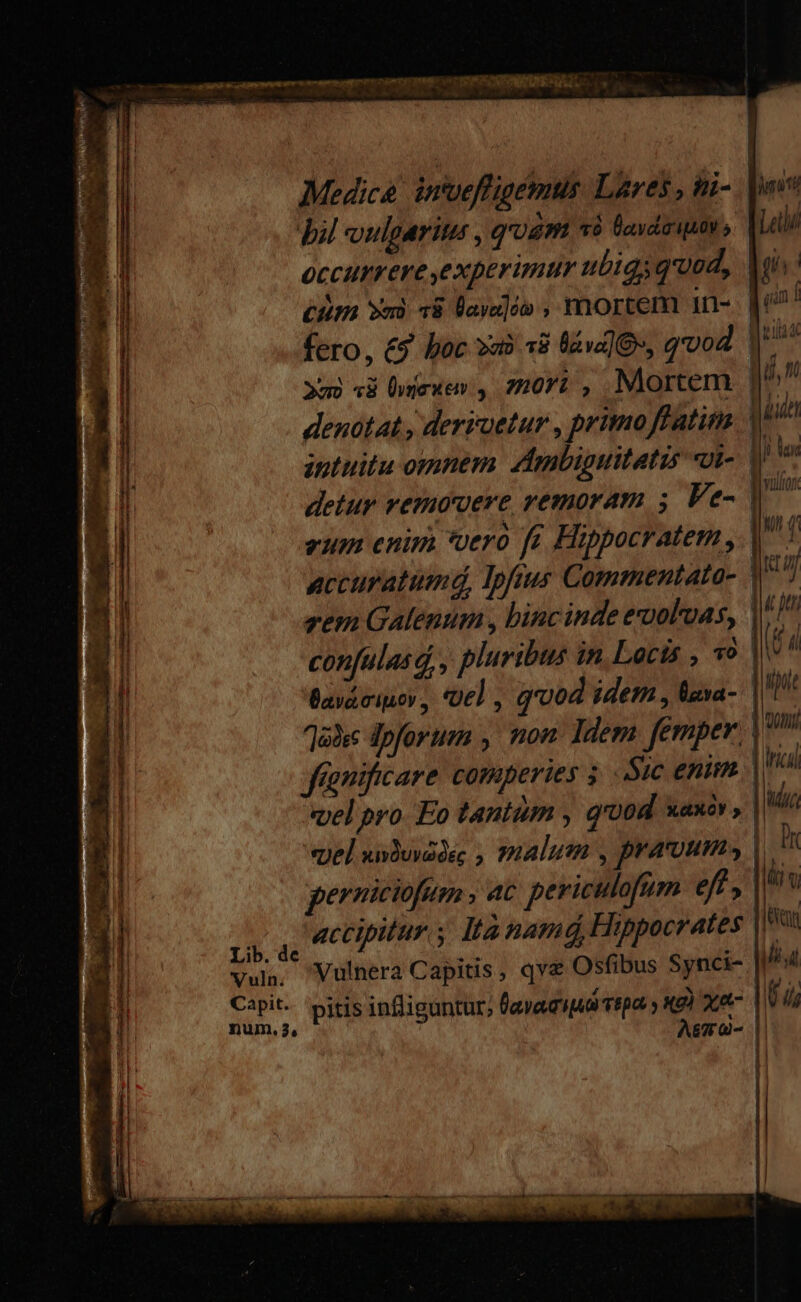 Medicæ investigemus Lares, ni-
hil vulgaritus, qvàm τὸ θανάσιμον,
occurrere, experimur ubiq; qvod,
cùm ὑπὸ τῦ θανατόω, mortem in-
fero, & hoc ὑπὸ τῦ θάνατος, qvod
ὑπὸ τῦ θνήσκειν, mori, Mortem
denotat, derivetur, primo statim
intuitu omnem Ambiguitatis vi-
detur removere remoram; Ve-
rum enim verò si Hippocratem,
accuratumq́, Ipsius Commentato-
rem Galenum, hinc inde evolvas,
consulasq́, pluribus in Locis, τὸ
θανάσιμον, vel, qvod idem, θανα-
τῶδες Ipsorum, non Idem semper
significare comperies; Sic enim
vel pro Eo tantùm, qvod κακὸν,
vel κινδυνῶδες, malum, pravum,
perniciosum, ac periculosum est,
accipitur; Ità namq́, Hippocrates
Lib. de
Vuln.
Capit.
num. 3,
Vulnera Capitis, qvæ Osfibus Synci-
pitis infliguntur, θανασιμώτερα, καὶ χα-
λεπώ-